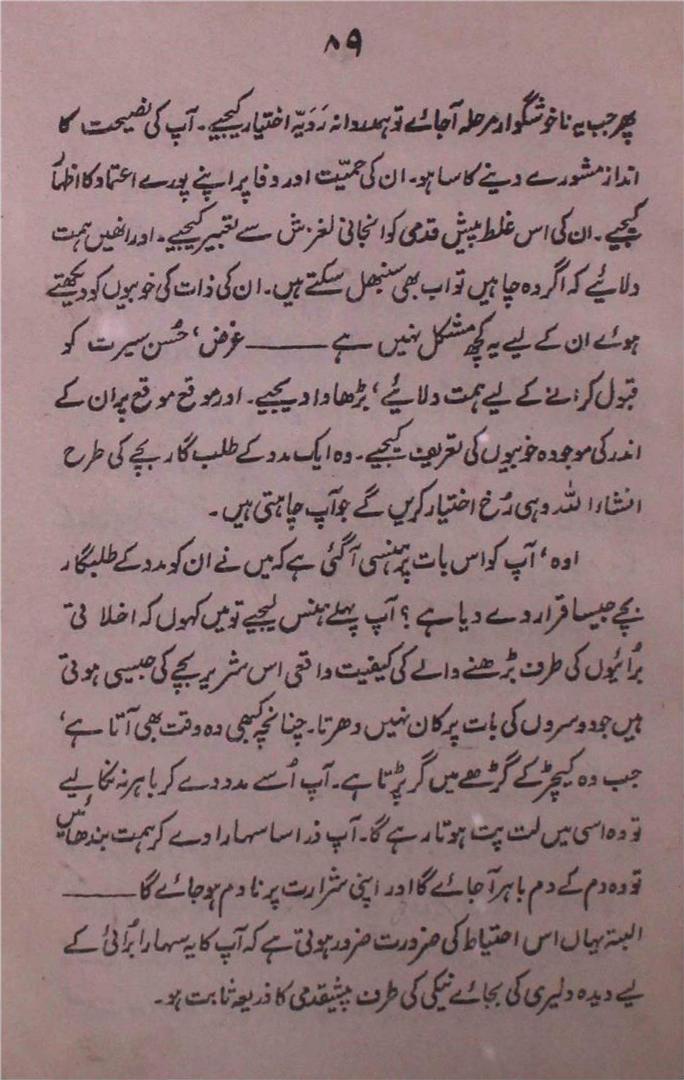 ۸۹
پھر جب یہ ناخوشگوار مرحلہ آجائے تو ہمدردانہ رَدَیّہ اختیار کیجیے۔ آپ کی نصیحت کا
انداز مشورے دینے کا سا ہو۔ ان کی حمیّت اور وفا پر اپنے پورے اعتماد کا اظہار
کیجیے۔ ان کی اس غلط پیش قدمی کو انجانی لغزش سے تعبیر کیجیے۔ اور انھیں ہمت
دلائیے کہ اگر وہ چاہیں تو اب بھی سنبھل سکتے ہیں۔ ان کی ذات کی خوبیوں کو دیکھتے
ہوئے ان کے لیے یہ کچھ مشکل نہیں ہے ——— غرض، حُسن سیرت کو
قبول کرنے کے لیے ہمت دلائیے، بڑھاوا دیجیے۔ اور موقع موقع پر ان کے
اندر کی موجودہ خوبیوں کی تعریف کیجیے۔ وہ ایک مدد کے طلب گار بچے کی طرح
انشاء اللہ وہی رُخ اختیار کریں گے جو آپ چاہتی ہیں۔
اوہ، آپ کو اس بات پر ہنسی آگئی ہے کہ میں نے ان کو مدد کے طلبگار
بچے جیسا قرار دے دیا ہے؟ آپ پہلے ہنس لیجیے تو میں کہوں کہ اخلاقی
برُائیوں کی طرف بڑھنے والے کی کیفیت واقعی اس شریر بچے کی جیسی ہوتی
ہیں جو دوسروں کی بات پر کان نہیں دھرتا۔ چنانچہ کبھی وہ وقت بھی آتا ہے،
جب وہ کیچڑ کے گڑھے میں گر پڑتا ہے۔ آپ اُسے مدد دے کر باہر نہ نکالیے
تو وہ اسی میں لت پت ہوتا رہے گا۔ آپ ذرا سا سہارا دے کر ہمت بندھائیں
تو وہ دم کے دم باہر آجائے گا اور اپنی شرارت پر نادم ہوجائے گا ———
البتہ یہاں اس احتیاط کی ضرورت ضرور ہوتی ہے کہ آپ کا یہ سہارا برُائی کے
لیے دیدہ دلیری کی بجائے نیکی کی طرف پیشقدمی کا ذریعہ ثابت ہو۔